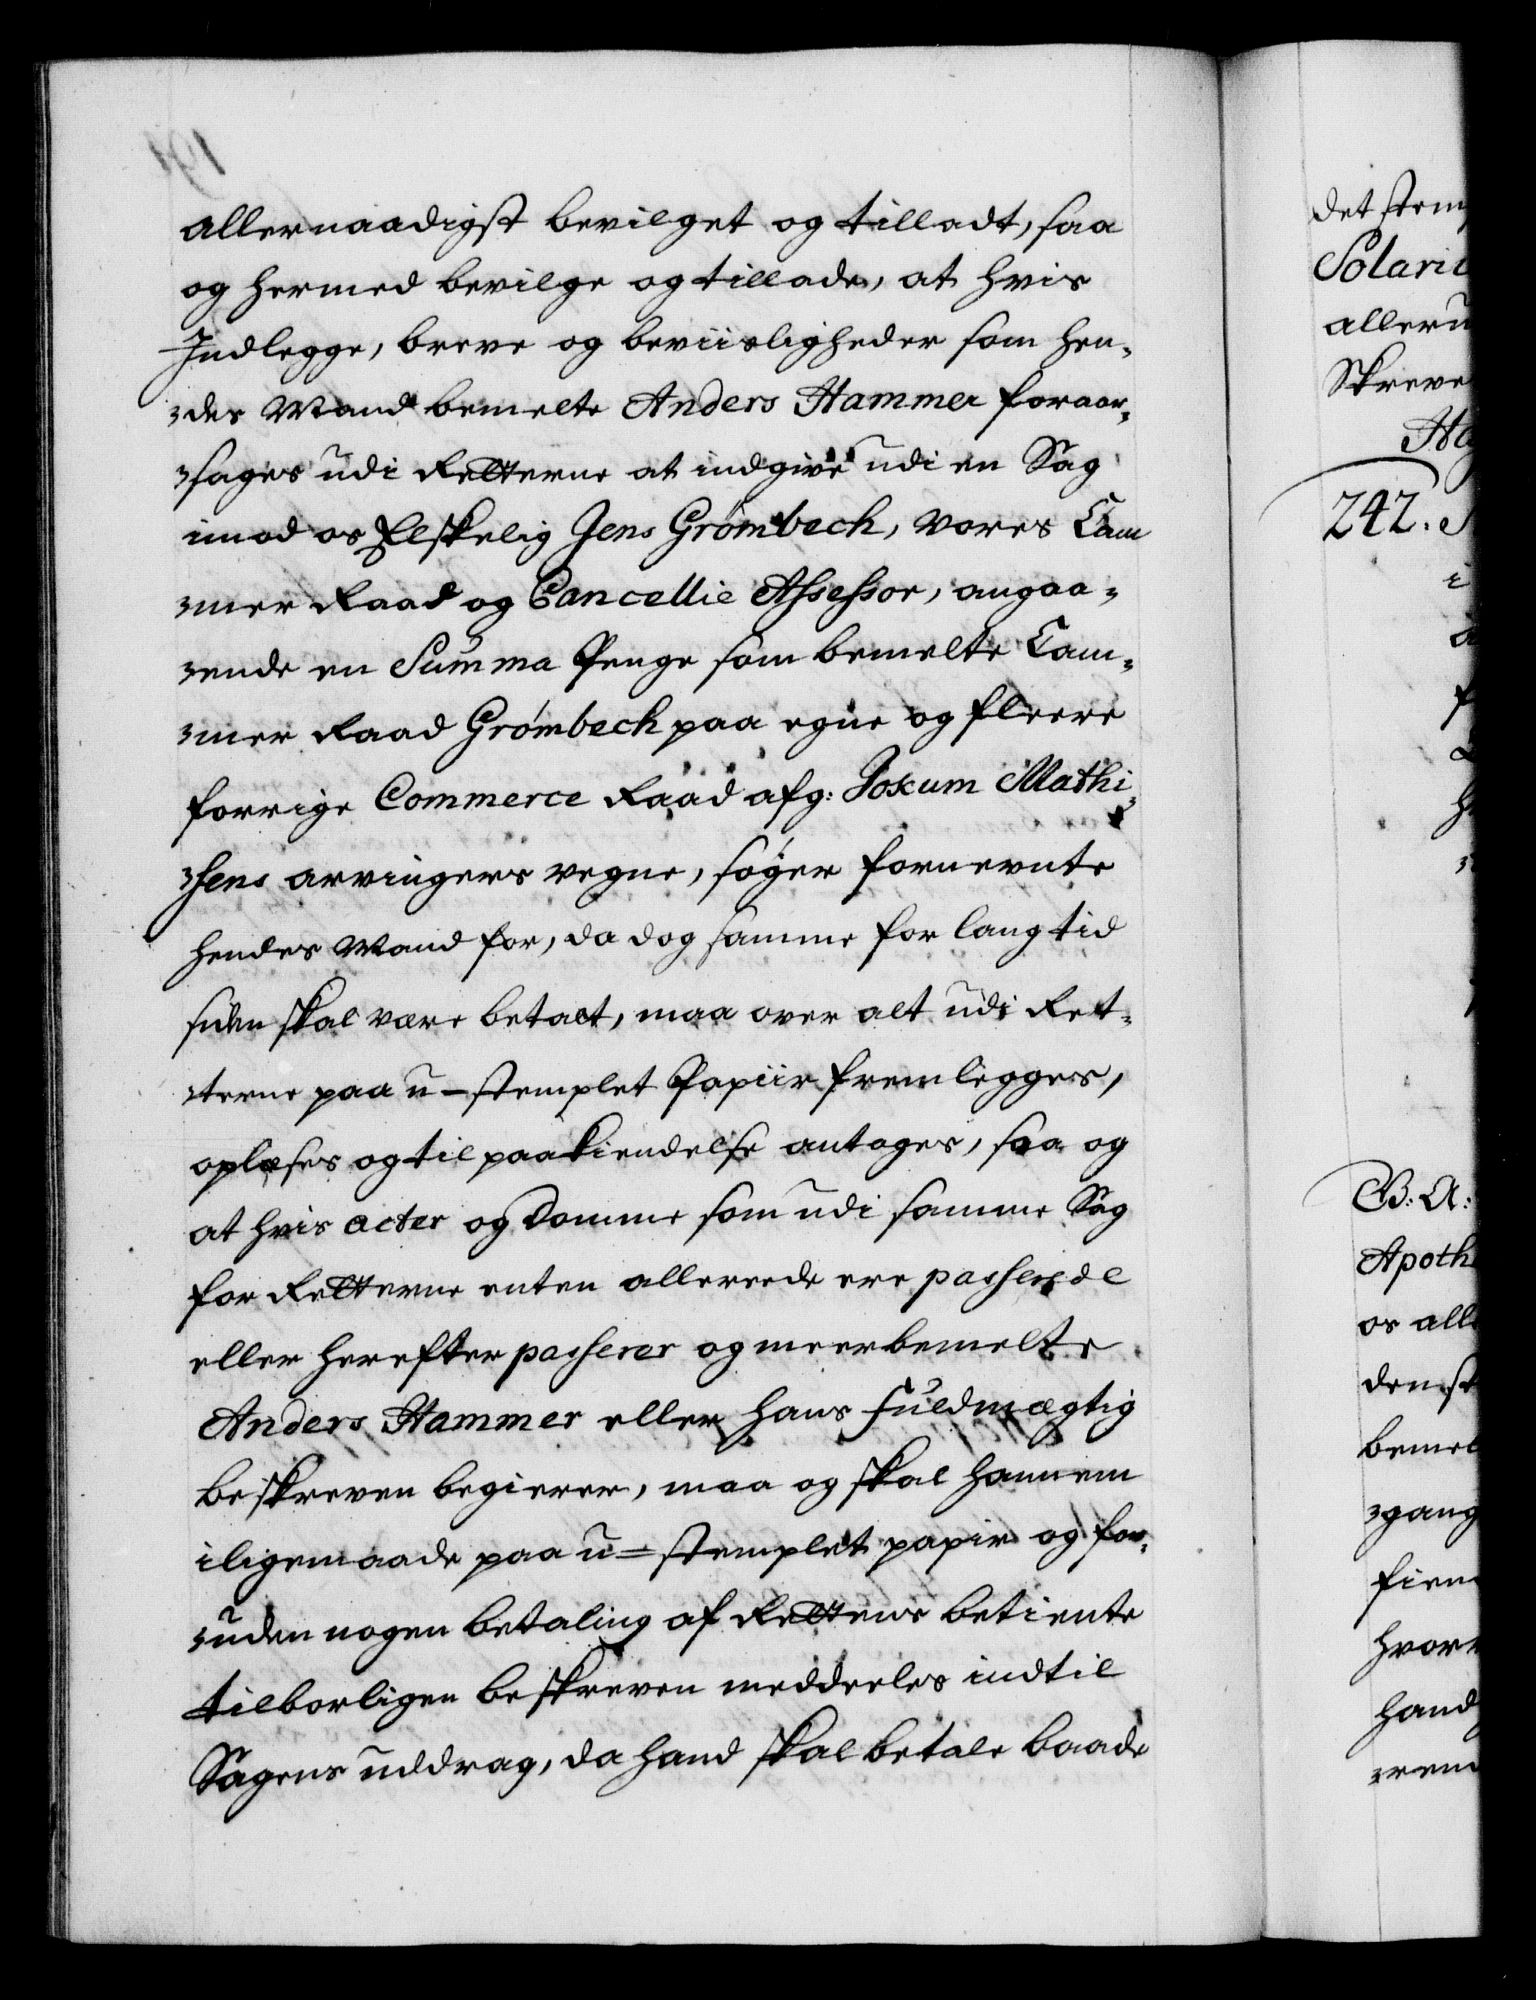 allernaadigst bevilget og tilladt, saa
og hermed bevilge og tillade, at hvis
Indlegge, breve og beviisligheder som hen-
-des Mand bemelte Anders Hammer foraar-
-sages udi Retterne at indgive udi en Sag
imod os Elskelig Jens Grømbech, vores Cam
-mer Raad og Cancellie Assessor, angaa-
-ende en Summa Penge som bemelte Cam-
-mer Raad Grømbech paa egne og fleere
forrige Commerce Raad afg: Jokum Mathi-
-sens arvingers vegne, søger fornevnte
hendes Mand for, da dog samme for lang tid
siden skal være betalt, maa over alt udi Ret-
-terne paa u-stemplet Papiir fremlegges,
oplæses og til paakiendelse antages, saa og
at hvis acter og Domme som udi samme Sag
for Retterne enten allereede ere passerede
eller herefter passerer og meerbemelte
Anders Hammer eller hans fuldmægtig
beskreven begierer, maa og skal hannem
iligemaade paa u-stemplet papir og for-
-uden nogen betaling af Rettens betiente
tilborligen beskreven meddeeles indtil
Sagens uddrag, da hand skal betale baade
det stem
Solari
alleru
Skreve
242.
B: A:
Apoth
os all
denst
bemel
-gang
fien
hvor
hand